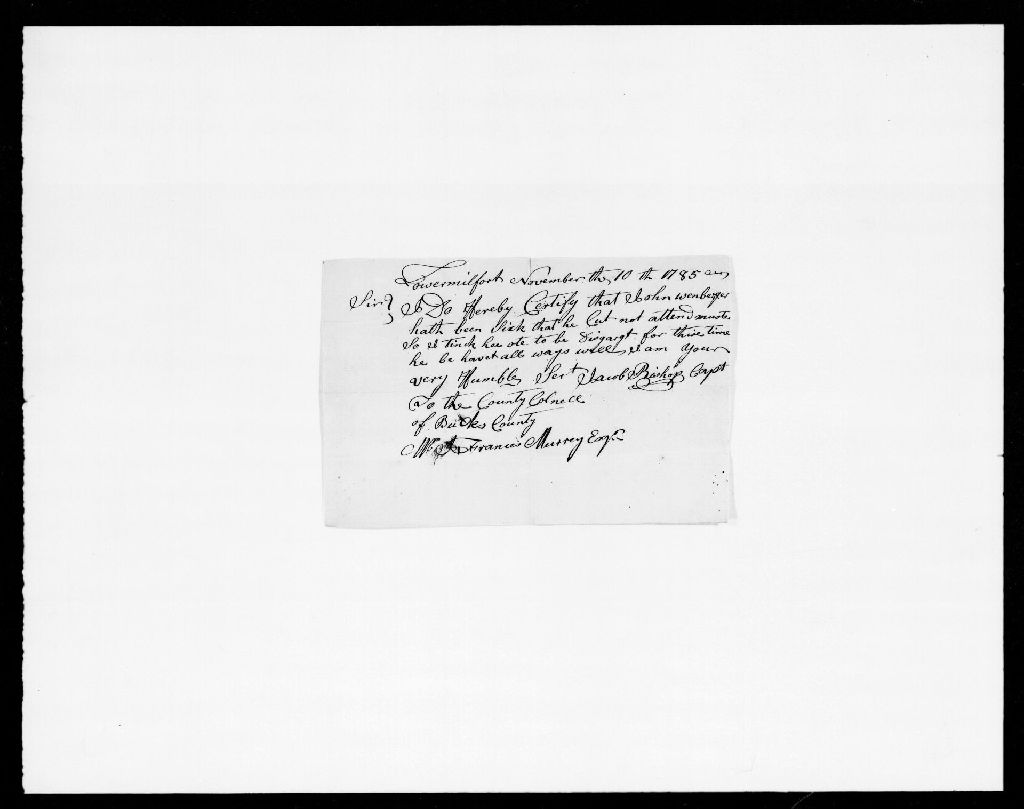 Lowermilfort November the 10 th 1785
Sir I Do Hereby Certify that John wenberger
hath been Sick that he Cut not attend
So I tinck hee ote to be Disgargt for these time
he be havet all ways well I am your
very Humble Sert Jacob Bishop Capt
To the County Colnell
of Bucks County
Mr Francis Murrey Esqr